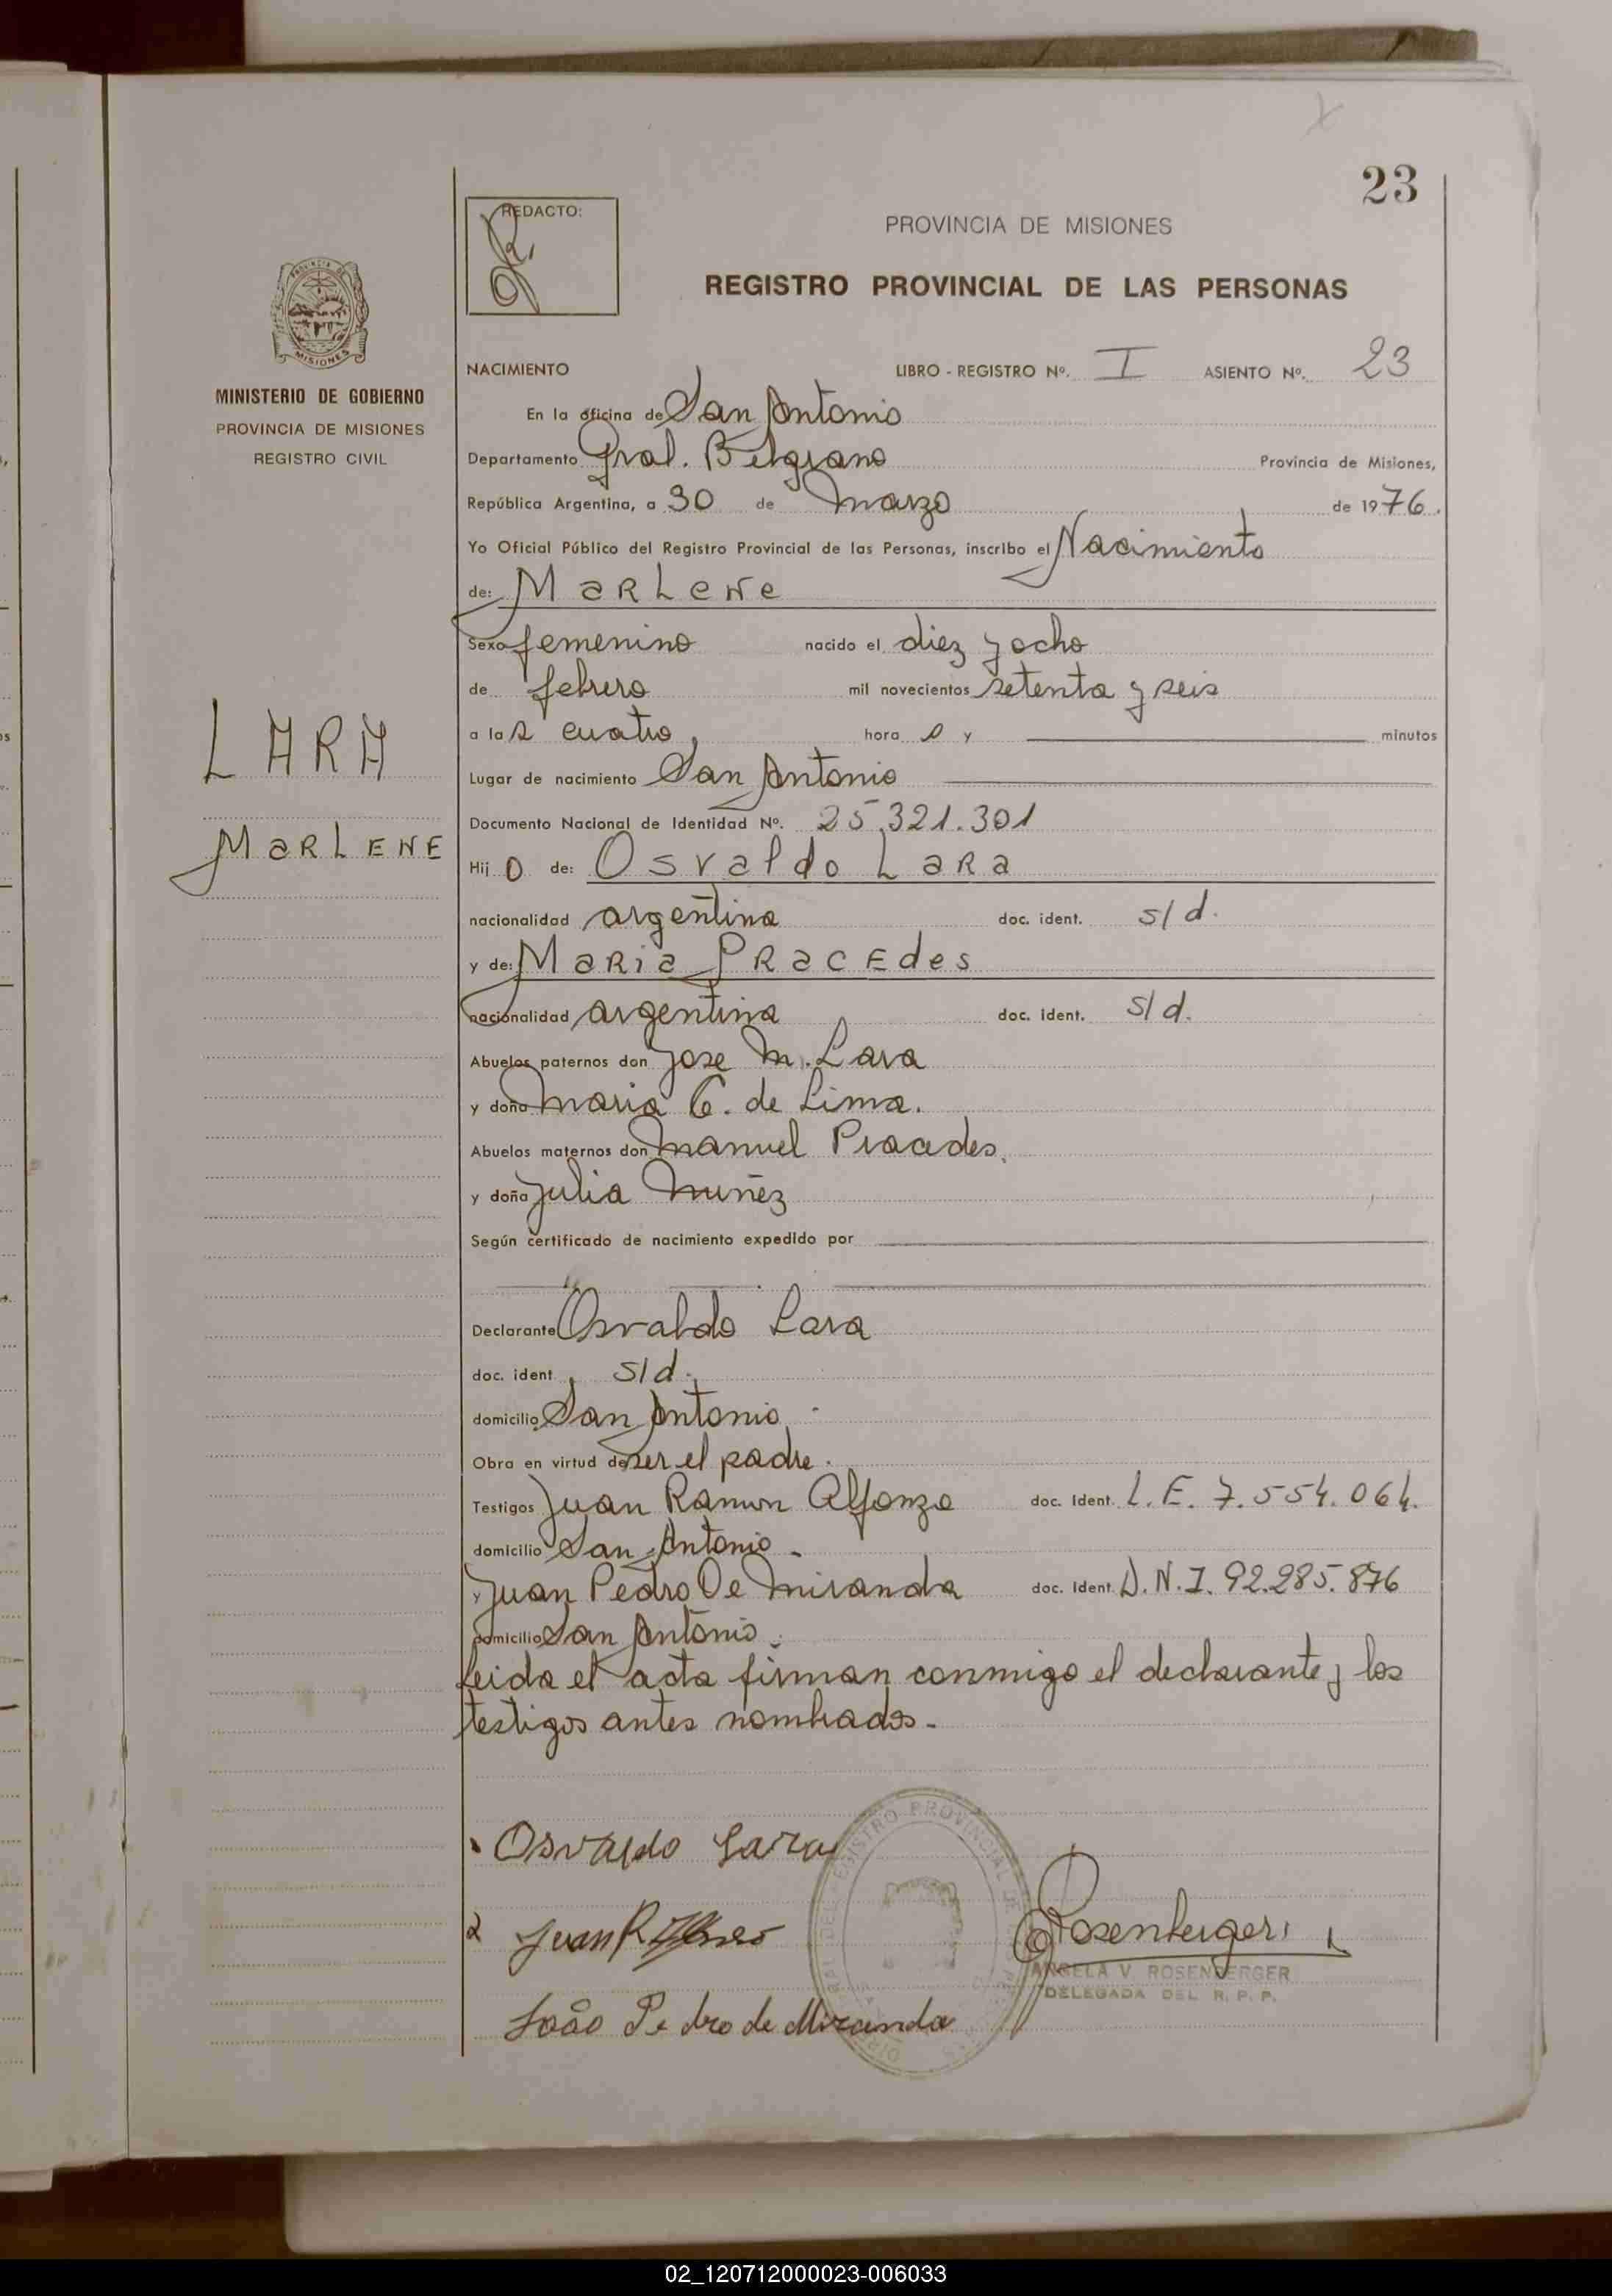 23
REDACTO:
PROVINCIA DE MISIONES
REGISTRO PROVINCIAL DE LAS PERSONAS
MISIONES
MINISTERIO DE GOBIERNO
PROVINCIA DE MISIONES
REGISTRO CIVIL
LARA
MARLENE
NACIMIENTO LIBRO - REGISTRO Nº. I ASIENTO Nº. 23
En la oficina de San Antonio
Departamento Gral. Belgrano Provincia de Misiones,
República Argentina, a 30 de Marzo de 1976.
Yo Oficial Público del Registro Provincial de las Personas, inscribo el Nacimiento
de: MaRLeNe
Sexo femenino nacido el diez y ocho
de febrero mil novecientos setenta y seis
a las cuatro hora s y minutos
Lugar de nacimiento San Antonio
Documento Nacional de Identidad Nº. 25.321.301
Hij o de: Osvaldo LaRa
nacionalidad argentina doc. ident. s/d.
y de: MaRia PRacEdes
nacionalidad argentina doc. ident. s/d.
Abuelos paternos don Jose M. Lara
y doña Maria C. de Lima.
Abuelos maternos don Manuel Pracedes.
y doña Julia Nuñez
Según certificado de nacimiento expedido por
Declarante Osvaldo Lara
doc. ident. s/d.
domicilio San Antonio
Obra en virtud de ser el padre.
Testigos Juan Ramon Alfonzo doc. Ident. L.E. 7.554.064.
domicilio San Antonio
y Juan Pedro De Miranda doc. Ident. D.N.I. 92.285.876
domicilio San Antonio.
Leida el acta firman conmigo el declarante y los
testigos antes nombrados.
Osvaldo Lara
Juan R
João Pedro de Miranda
Rosenberger
ANGELA V. ROSENBERGER
DELEGADA DEL R. P. P.
02_120712000023-006033